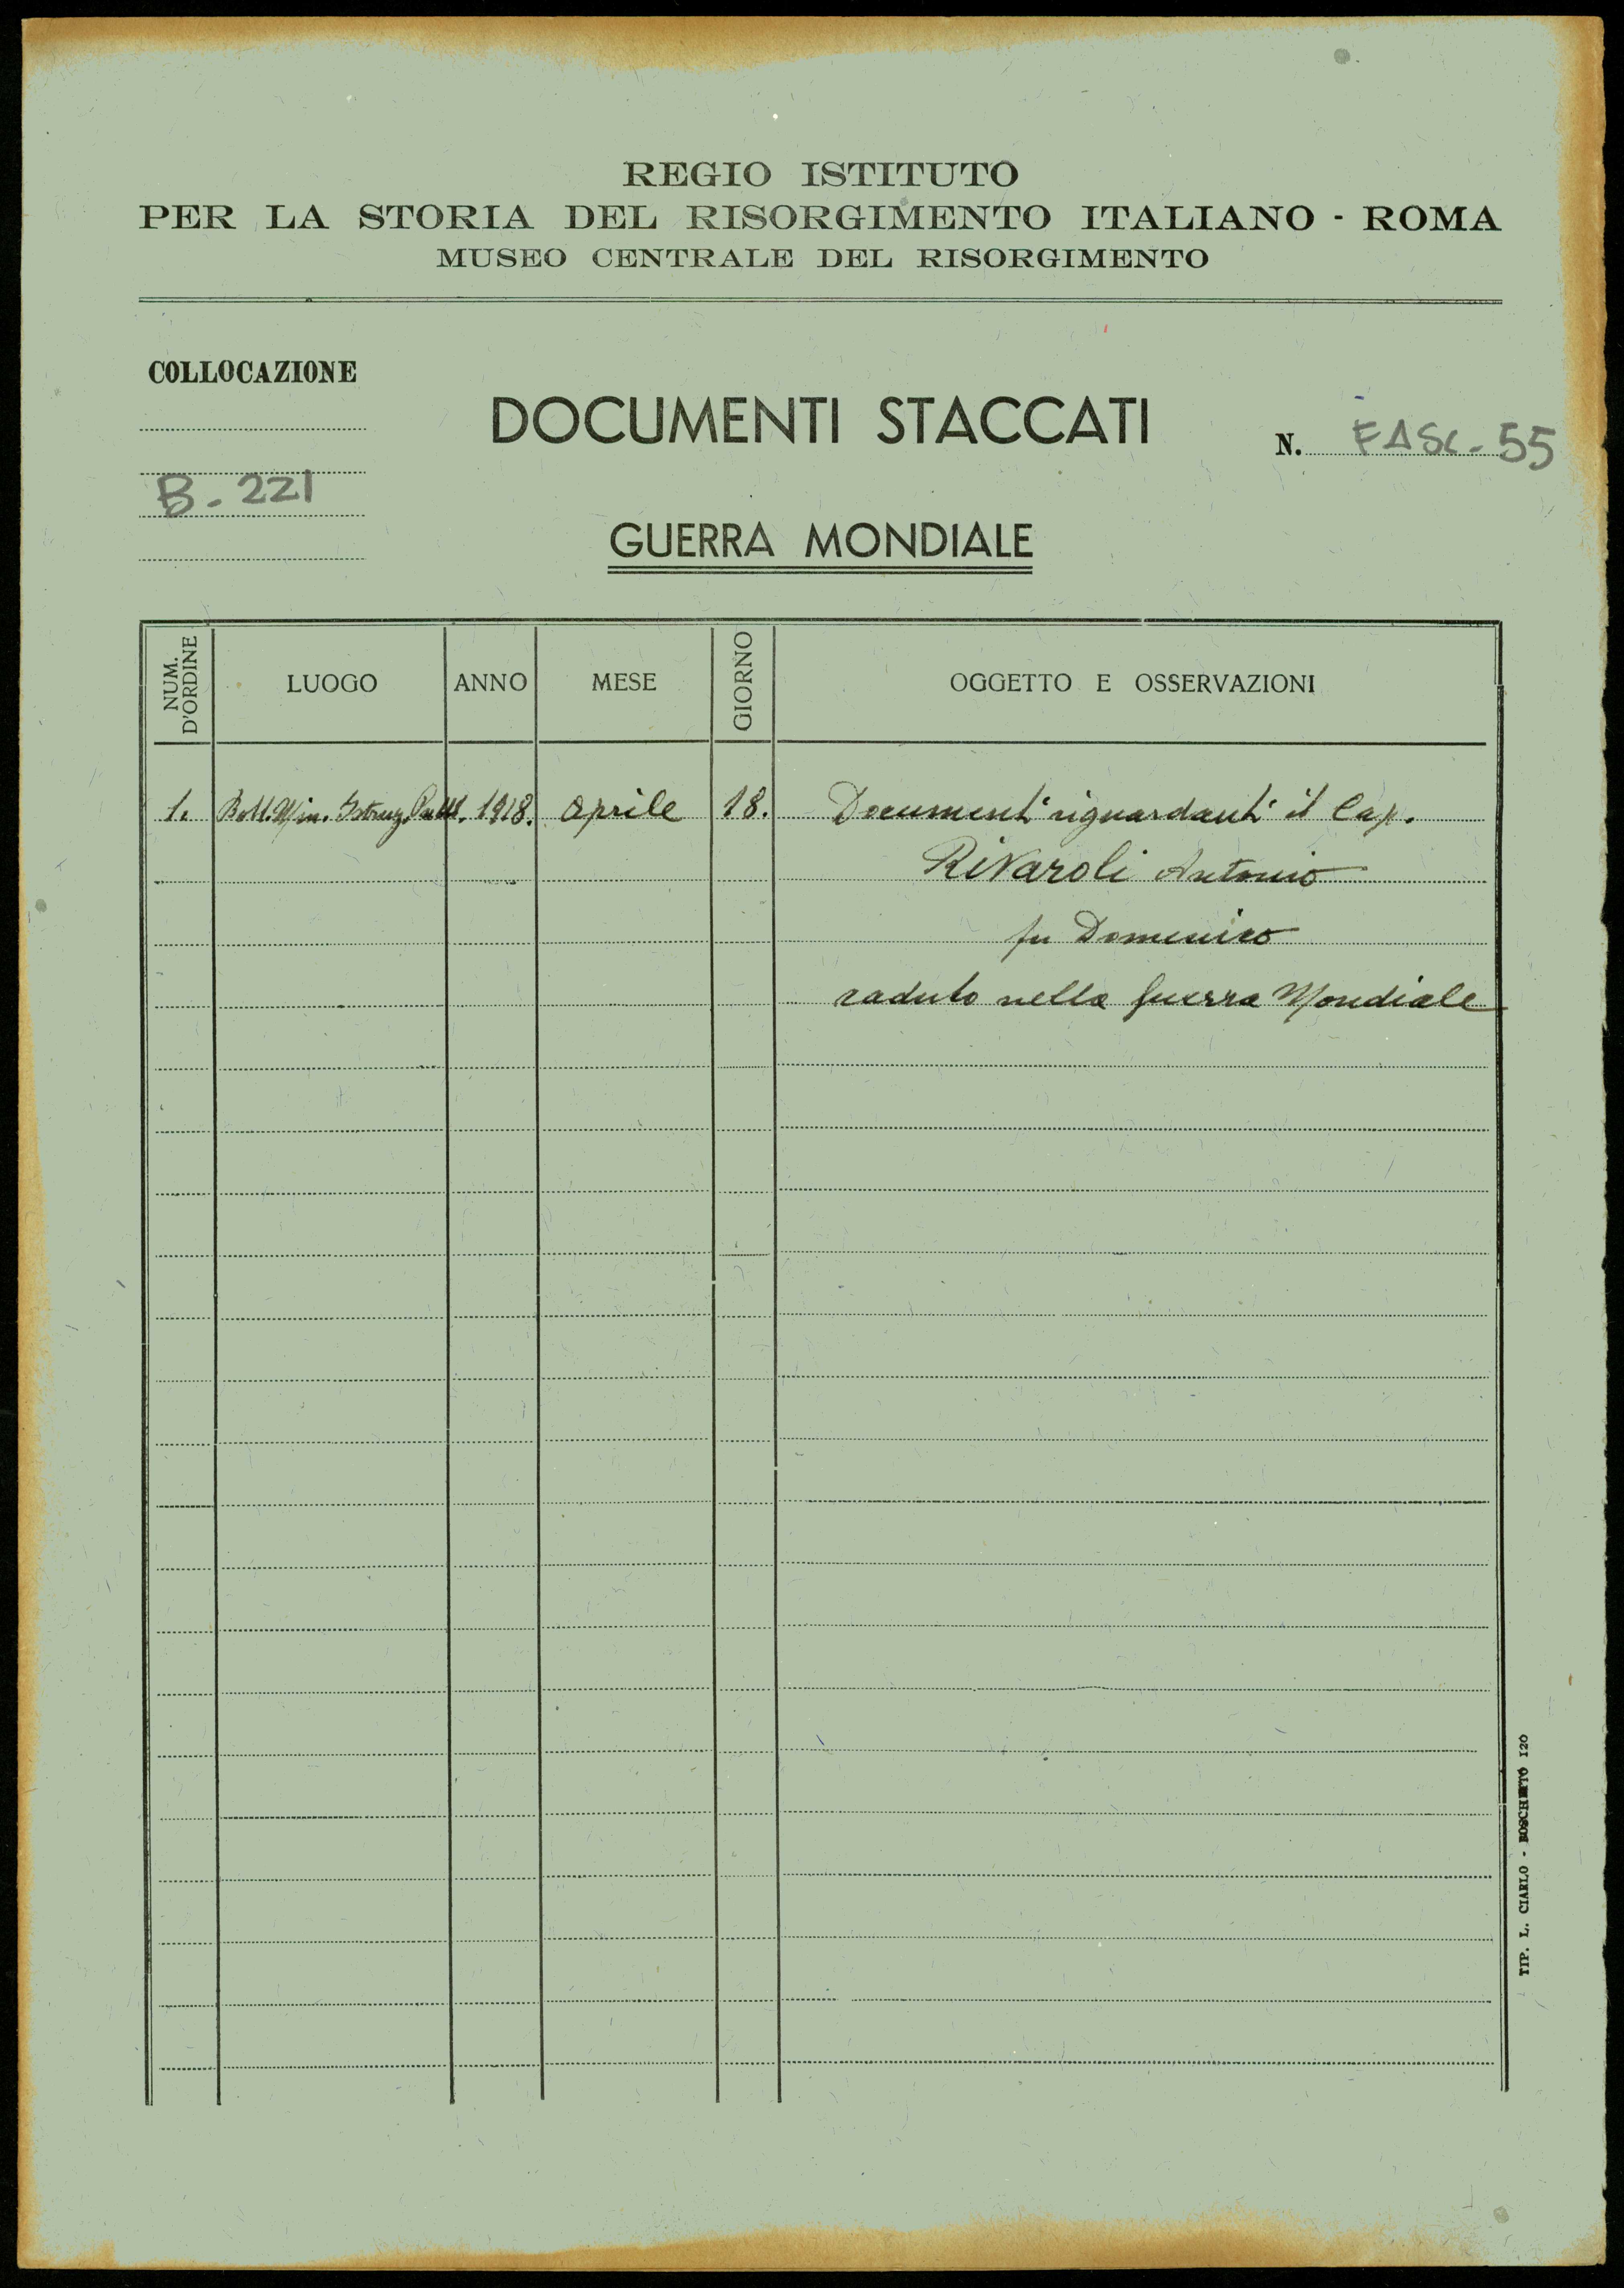 REGIO ISTITUTO
PER LA STORIA DEL RISORGIMENTO ITALIANO - ROMA
MUSEO CENTRALE DEL RISORGIMENTO
COLLOCAZIONE
B. 221
DOCUMENTI STACCATI
N. FASC. 55
GUERRA MONDIALE
NUM. D'ORDINE LUOGO ANNO MESE GIORNO OGGETTO E OSSERVAZIONI
1. Boll. Min. Istruz. Pubbl. 1918. Aprile 18. Documenti riguardanti il Cap.
Rivaroli Antonio
fu Domenico
caduto nella Guerra Mondiale
TIP. L. CIARLO - BOSCHETTO 120